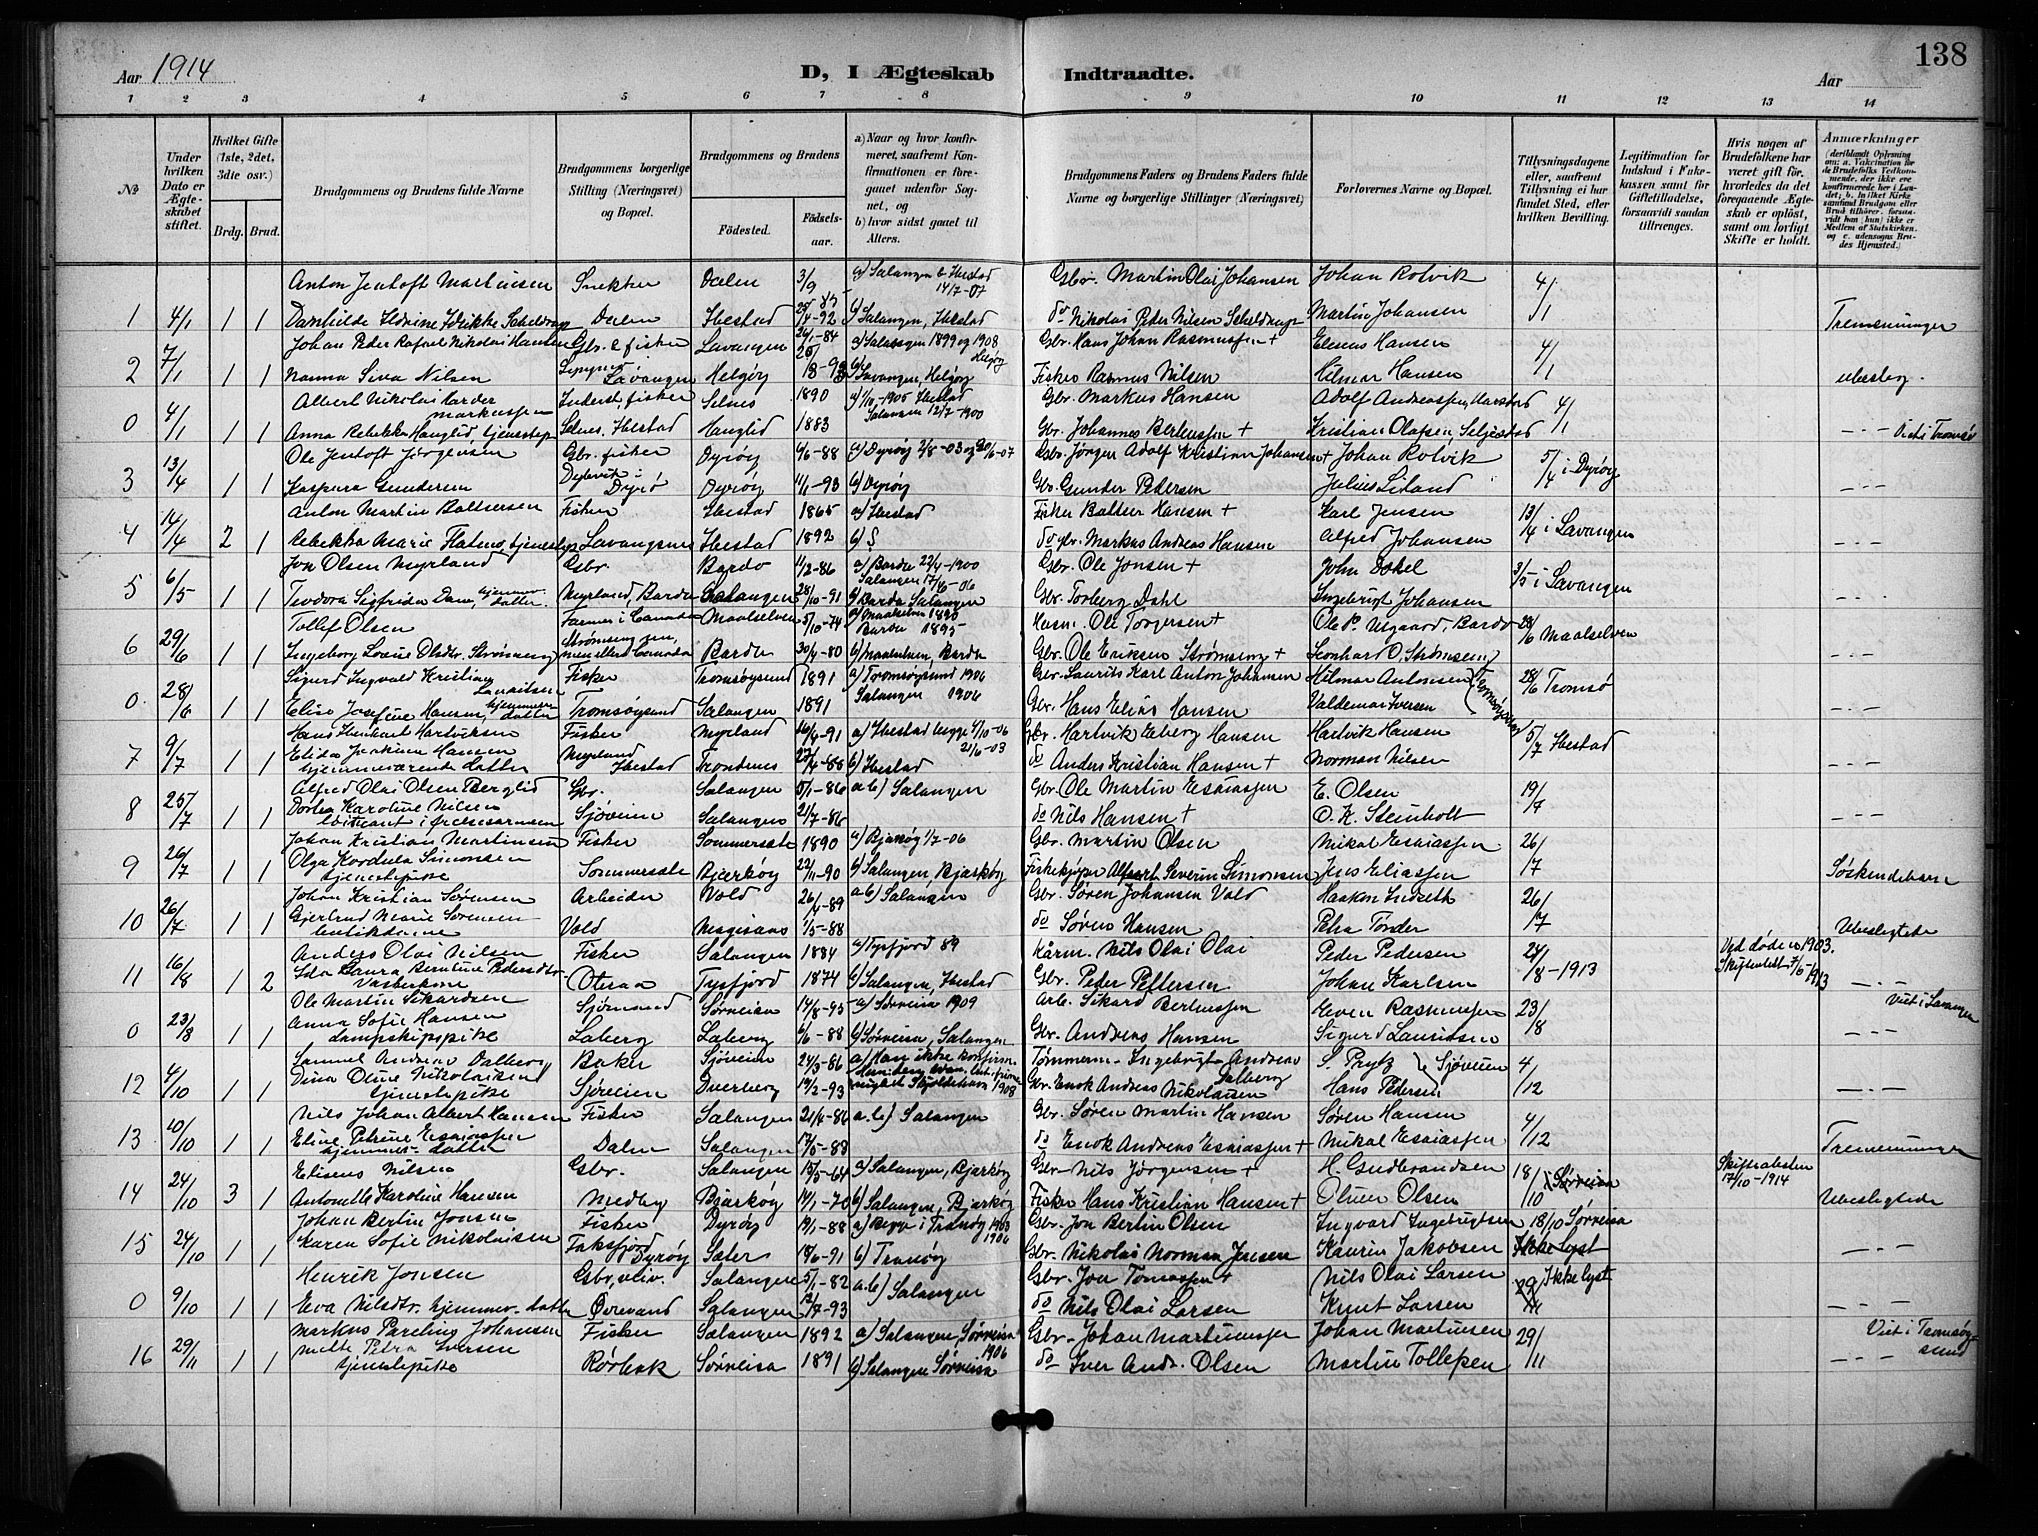 Aar 1914
D, I Ægteskab Indtraadte.
138
Aar
1 2 3 4 5 6 7 8 9 10 11 12 13 14
No
Under hvilken Dato er Ægteskabet stiftet.
Hvilket Gifte (1ste, 2det, 3die osv.)
Brdg. Brud.
Brudgommens og Brudens fulde Navne
Brudgommens borgerlige Stilling (Næringsvei) og Bopæl.
Brudgommens og Brudens
Fødested.
Fødselsaar.
a) Naar og hvor konfirmeret, saafremt Konfirmationen er foregaaet udenfor Sognet, og
b) hvor sidst gaaet til Alters.
Brudgommens Faders og Brudens Faders fulde Navne og borgerlige Stillinger (Næringsvei)
Forlovernes Navne og Bopæl.
Tillysningsdagene eller, saafremt Tillysning ei har fundet Sted, efter hvilken Bevilling.
Legitimation for Indskud i Fakkassen samt for Giftetilladelse, forsaavidt saadan tiltrænges.
Hvis nogen af Brudefolkene har været gift, hvorledes da det foregaaende Ægteskab er opløst, samt om lovligt Skifte er holdt.
Anmærkninger
Anton Jentoft Martinsen Snekker Dalen 3/9 a) Salangen & Ibestad 14/7-07 Gbr. Martin Olai Johansen Johan Rotvik 4/1
1 4/1 1 1 Dalen Ibestad 25/4-92 b) Salangen, Ibestad do Nikolai Peder Nilsen Scheldrup Martin Johansen Tremenninger
Johan Peder Rafael Nikolai Hansen Gbr. & fisker Lavangen 26/1-84 a) Salangen 1899 og 1908 Helgøy Gbr. Hans Johan Rasmussen + Elesens Hansen 4/1
2 7/1 1 1 Nanna Siva Nilsen Lavangen Helgøy b) Lavangen, Helgøy Fisker Rasmus Nilsen Hilmar Hansen ubeslag.
Albert Nikolai Markussen Inderst, fisker Selnes 1890 1905 Ibestad Gbr. Markus Hansen Adolf Andreassen, Harstad 4/1
0 4/1 1 1 Anna Rebekka Hanglid, tjenestep Selnes, Ibestad Hanglid 1883 Salangen 12/7-1900 Gbr. Johannes Berteussen + Kristian Olafsen, Seljestad - " - Viet i Tromsø
Ole Jentoft Jørgensen Gbr. fisker Dyrøy 4/6-88 a) Dyrøy 2/8-03 og 20/6-07 Gbr. Jørgen Adolf Kristian Johansen + Johan Rotvik 5/4 i Dyrøy
3 13/4 1 1 Kaspara Gundersen Dyrø Dyrøy 11/1-93 b) Dyrøy Gbr. Gunder Pedersen Julius Liland - " -
Anton Martin Baltsersen Fisker Ibestad 1865 a) Ibestad Fisker Baltser Hansen + Karl Jensen 13/4 i Lavangen
4 14/4 2 1 Rebekka Marie Flatmo, tjenestep Lavangsnes Ibestad 1892 b) S do gbr. Markus Andreas Hansen Alfred Johansen - " -
Jon Olsen Myrland Gbr. Bardo 11/2-86 a) Bardu 22/4-1900 Gbr. Ole Jonsen + John Dokel 3/5 i Lavangen
5 6/5 1 1 Teodora Sigfrida Dahl, hjemmev. datter. Myrland, Bardu Salangen 28/10-91 Salangen 17/6-06 b) Bardu Salangen Gbr. Torberg Dahl Ingebrigt Johansen - " -
Tollef Olsen Farmer i Canada Maalselven 5/10-74 a) Maalselven 1890 Husm. Ole Torgersen + Ole P. Nygaard, Bardo 28/6 Maalselven
6 29/6 1 1 Ingeborg Louise Olsdtr. Strømseng Strømseng Bardu 30/4-80 Bardu 1895 b) Maalselven, Bardu Gbr. Ole Eriksen Strømseng + Leonhard O. Strømseng - " -
Sigurd Ingvald Kristian Lauritsen Fisker Tromsøysund 1891 a) Tromsøysund 1906 Gbr. Laurits Karl Anton Johansen Hilmar Antonsen Tromsøysund 28/6 Tromsø
0 28/6 1 1 Elise Josefine Hansen, hjemmev. datter Tromsøysund Salangen 1891 Salangen 1906 Gbr. Hans Elias Hansen Valdemar Iversen - " -
Hans Edenhart Hartviksen Fisker Myrland 16/4-91 a) Ibestad begge 4/10-06 21/6-03 Gbr. Hartvik Edberg Hansen Hartvik Hansen 5/7 Ibestad
7 9/7 1 1 Elida Joakine Hansen hjemmeværende datter Myrland Ibestad Trondenes 27/4-88 b) Ibestad do Anders Kristian Hansen + Norman Nilsen - " -
Alfred Olai Olsen Berglid Gbr. Salangen 5/1-86 a-b) Salangen Gbr. Ole Martin Esaiassen E. Olsen 19/7
8 25/7 1 1 Dortea Karoline Nilsen Sjøveien Salangen 21/7-86 do Nils Hansen + O. K. Steinholt - " -
Johan Kristian Martinsen Fisker Sommersæte 1890 a) Bjarkøy 1/7-06 Gbr. Martin Olsen Mikal Esaiassen 26/7
9 26/7 1 1 Olga Kordula Simonsen tjenestepike Sommersæte Bjarkøy 22/11-90 b) Salangen, Bjarkøy Fiskekjøper Albert Severin Simonsen Jens Eliassen Søskendebarn
Johan Kristian Sørensen Arbeider Vold 26/4-89 a-b) Salangen Gbr. Søren Johansen Vold Haakon Indseth 26/7
10 26/7 1 1 Gjertrud Marie Sørensen butikdame Vold 1/5-88 do Søren Hansen Petra Tønder Ubeslegtede
Anders Olai Nilsen Fisker Salangen 1884 a) Tysfjord 89 Kårm. Nils Olai Olai Peder Pedersen 24/8-1913 Ved døden 1903.
11 16/8 1 2 Ida Laura Berntine Pedersdtr. Vasberkone Oteraa Tysfjord 1874 b) Salangen, Ibestad Gbr. Peder Pettersen Johan Karlsen Skifteattest 7/6-1913 - " -
Ole Martin Sikardsen Sjømand Sørreisa 14/8-95 a) Sørreisa 1909 Arb. Sikard Berteussen Even Rasmussen 23/8 Viet i Lavangen
0 23/8 1 1 Anna Sofie Hansen dampskipspike Laberg Laberg 6/1-88 b) Sørreisa, Salangen Gbr. Andreas Hansen Sigurd Lauritsen - " -
Samuel Andreas Dalberg Baker Sjøveien 24/3-86 a) Han ikke konfirm. Tømmerm. Ingebrigt Andreas Dalberg S. Prytz Sjøveien 4/12
12 4/10 1 1 Dina Oline Nikolaisen tjenestepike Sjøveien Dverberg 19/2-93 1908 Gbr. Enok Andreas Nikolaisen Hans Pedersen - " -
Nils Johan Albert Hansen Fisker Salangen 21/4-86 a-b) Salangen Gbr. Søren Martin Hansen Søren Hansen 4/12
13 10/10 1 1 Eline Petrine Esaiassen hjemmev. datter Dalen Salangen 17/5-88 do Enok Andreas Esaiassen + Mikal Esaiassen Tremenninger
Elisens Nilsen Gbr. Salangen 15/5-64 a) Salangen, Bjarkøy Gbr. Nils Jørgensen + H. Gudbrandsen 18/10 i Sørreisa Skifteattesten 17/10-1914
14 24/10 3 1 Antonette Karoline Hansen Medby Bjarkøy 19/1-70 b) Salangen, Bjarkøy Fisker Hans Kristian Hansen + Oluer Olsen Ubeslegtede
Johan Bertin Jonsen Fisker Dyrøy 19/1-88 a) Begge i Tranøy 1903 1906 Gbr. Jon Bertin Olsen Ingvard Ingebrigtsen 18/10 Sørreisa
15 24/10 1 1 Karen Sofie Nikolaisen Faksfjord Dyrøy Sæter 18/6-91 b) Tranøy Gbr. Nikolai Norman Jensen Kaurin Jakobsen Ikke lyst - " -
Henrik Jonsen Gbr. Salangen 5/1-82 a-b) Salangen Gbr. Jon Tomassen + Nils Olai Larsen Ikke lyst
0 9/10 1 1 Eva Nilsdtr. hjemmev. datter Øvrevand Salangen 93 do Nils Olai Larsen Knut Larsen 29/11 - " -
Markus Pareling Johansen Fisker Salangen 1892 a) Salangen, Sørreisa 1906 Gbr. Johan Martinussen Johan Martinsen 29/11 Viet i Tromsøysund
16 29/11 1 1 Petra Iversen tjenestepike Rørbak Sørreisa 1891 b) Salangen Sørreisa do Iver Andr. Olsen Martin Tollefsen - " -